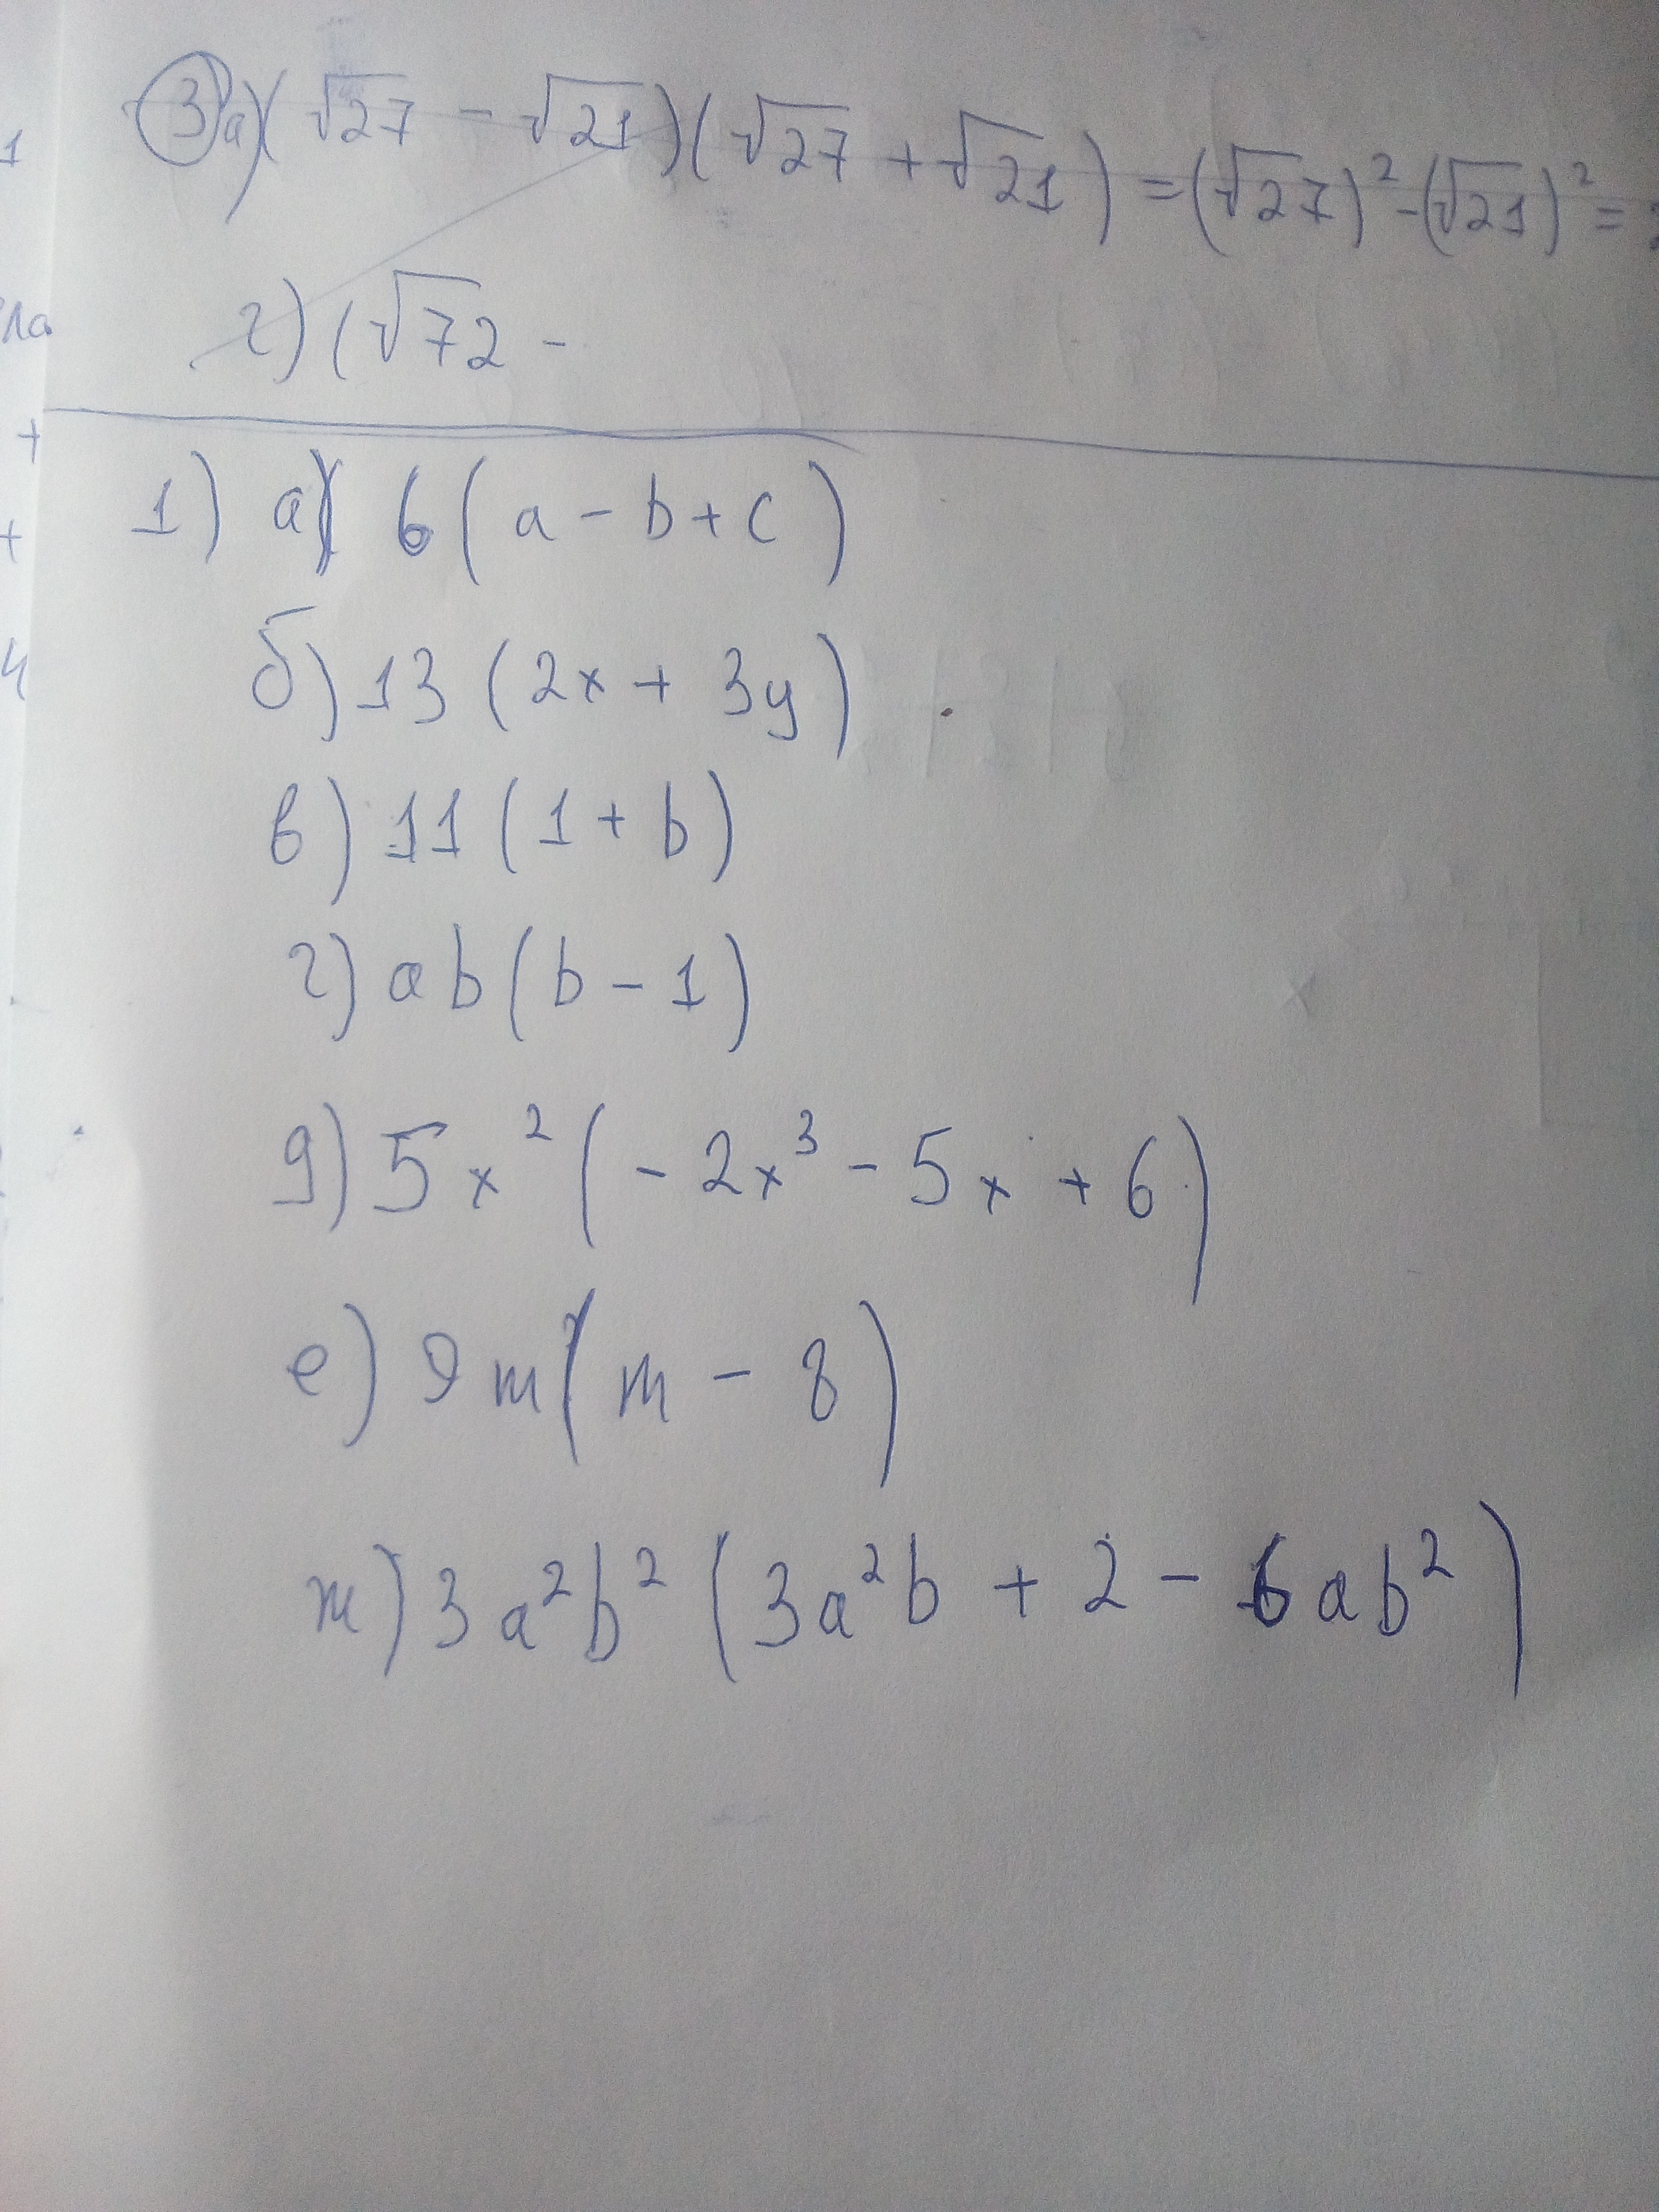 3 а) (√27 - √21)(√27 + √21) = (√27)² - (√21)² =
г) (√72 -
1) а) 6(a - b + c)
б) 13(2x + 3y)
в) 11(1 + b)
г) ab(b - 1)
д) 5x²(-2x³ - 5x + 6)
е) 9m(m - 8)
ж) 3a²b²(3a²b + 2 - 6ab²)